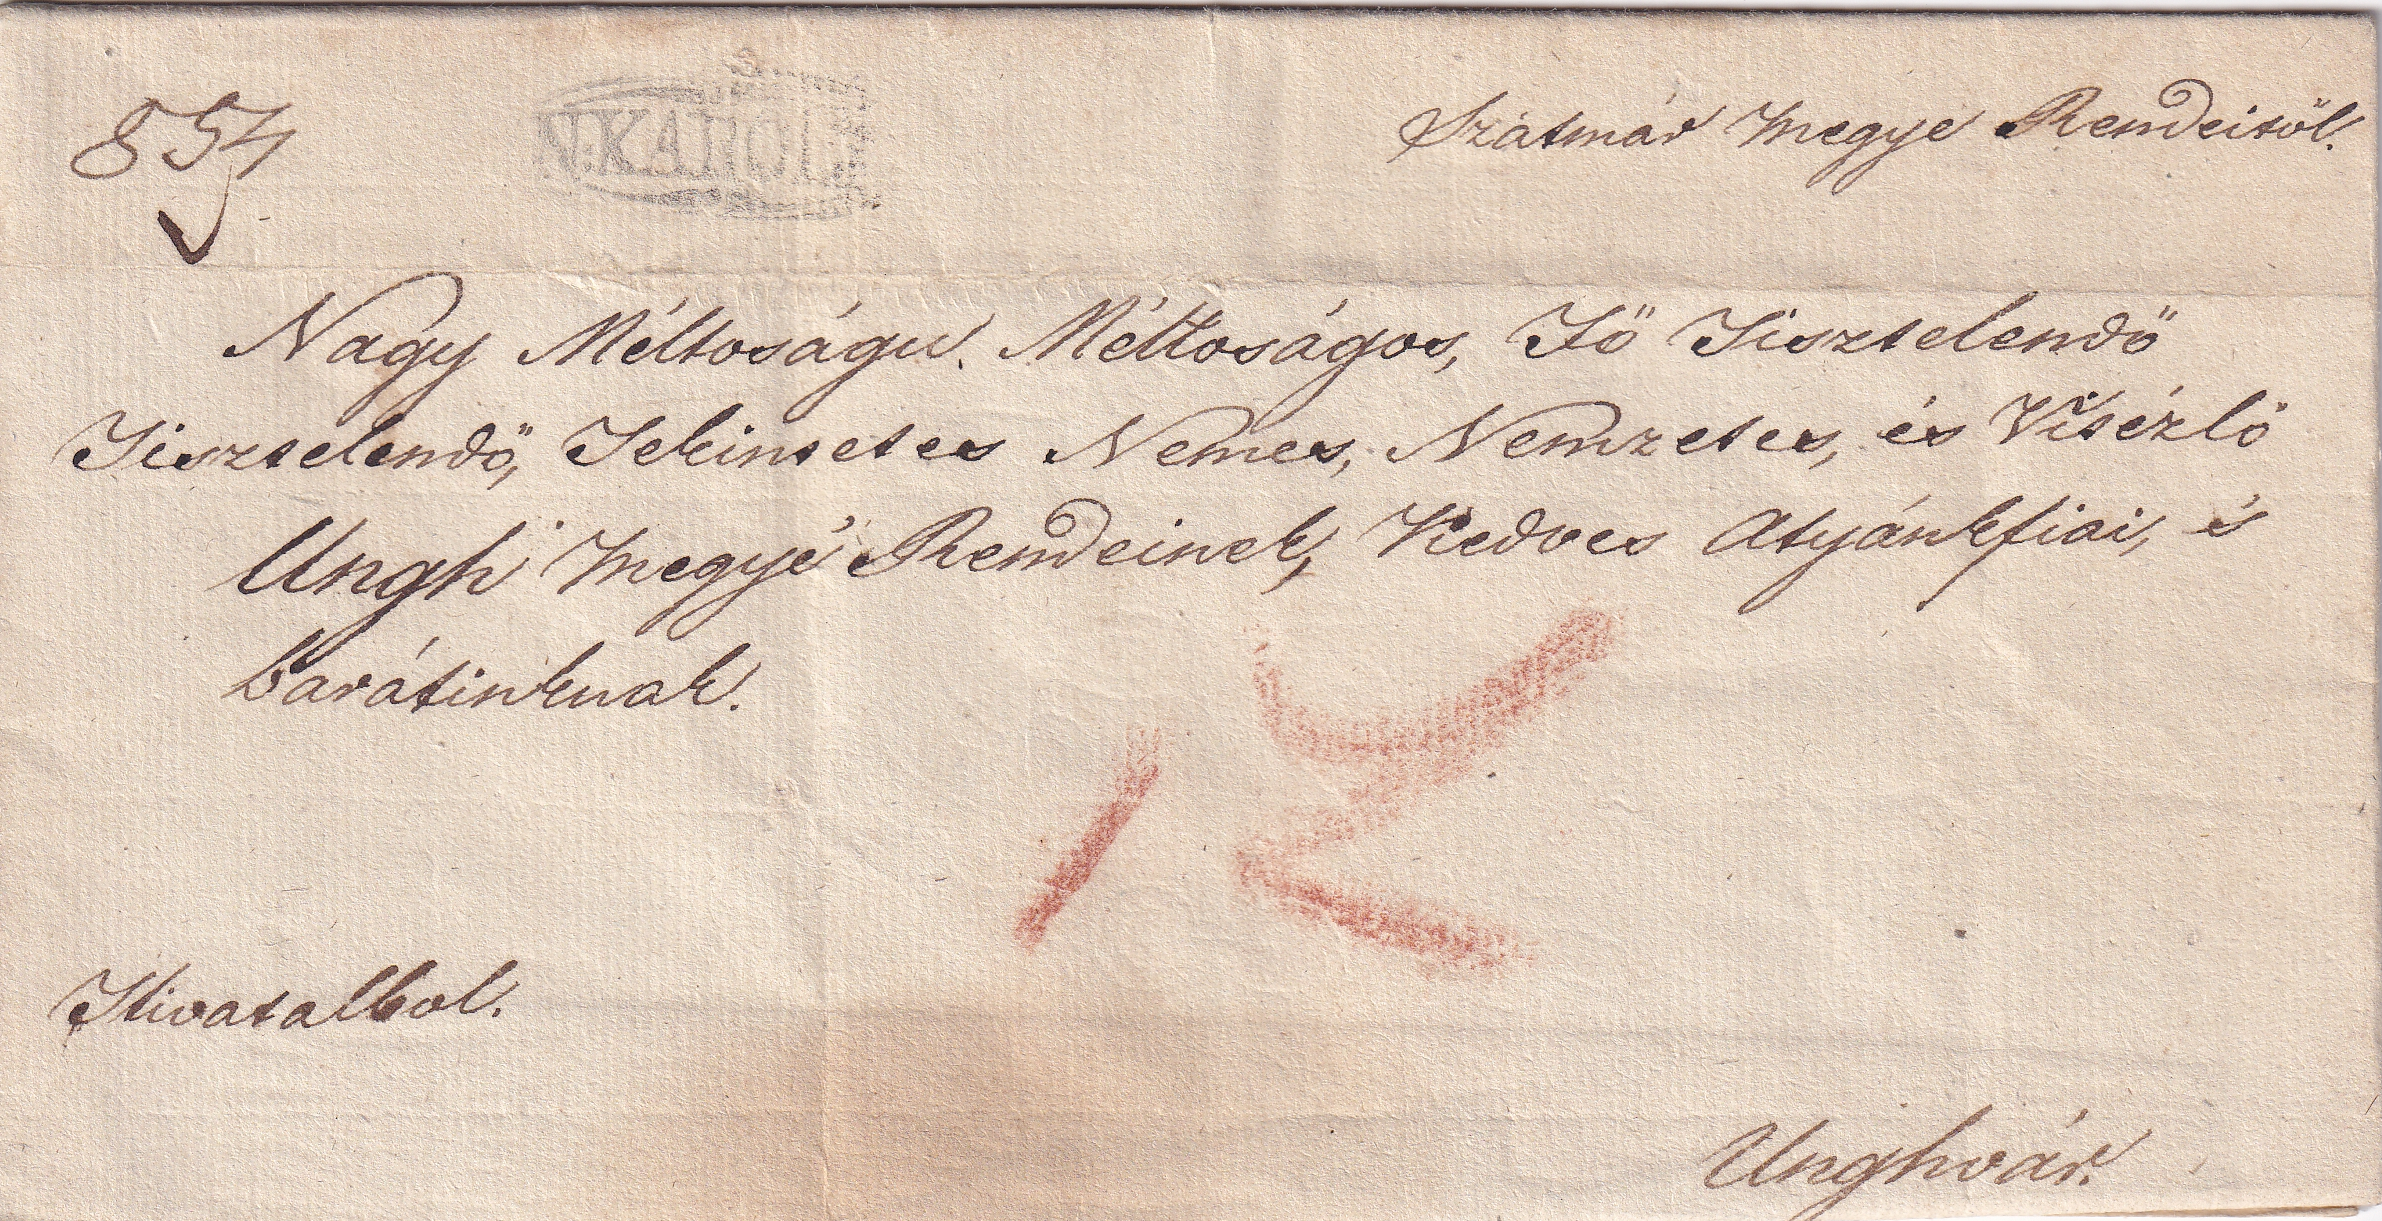 854
N.KAROLY
Szátmár Megye Rendeitöl.
Nagy Méltoságu. Méltoságos, Fö Tisztelendö
Tisztelendö, Tekintetes Nemes, Nemzetes, és Vitézlö
Ungh Megye Rendeinek, Kedves Atyánkfiai, és
barátinknak.
12
Hivatalbol.
Unghvár.